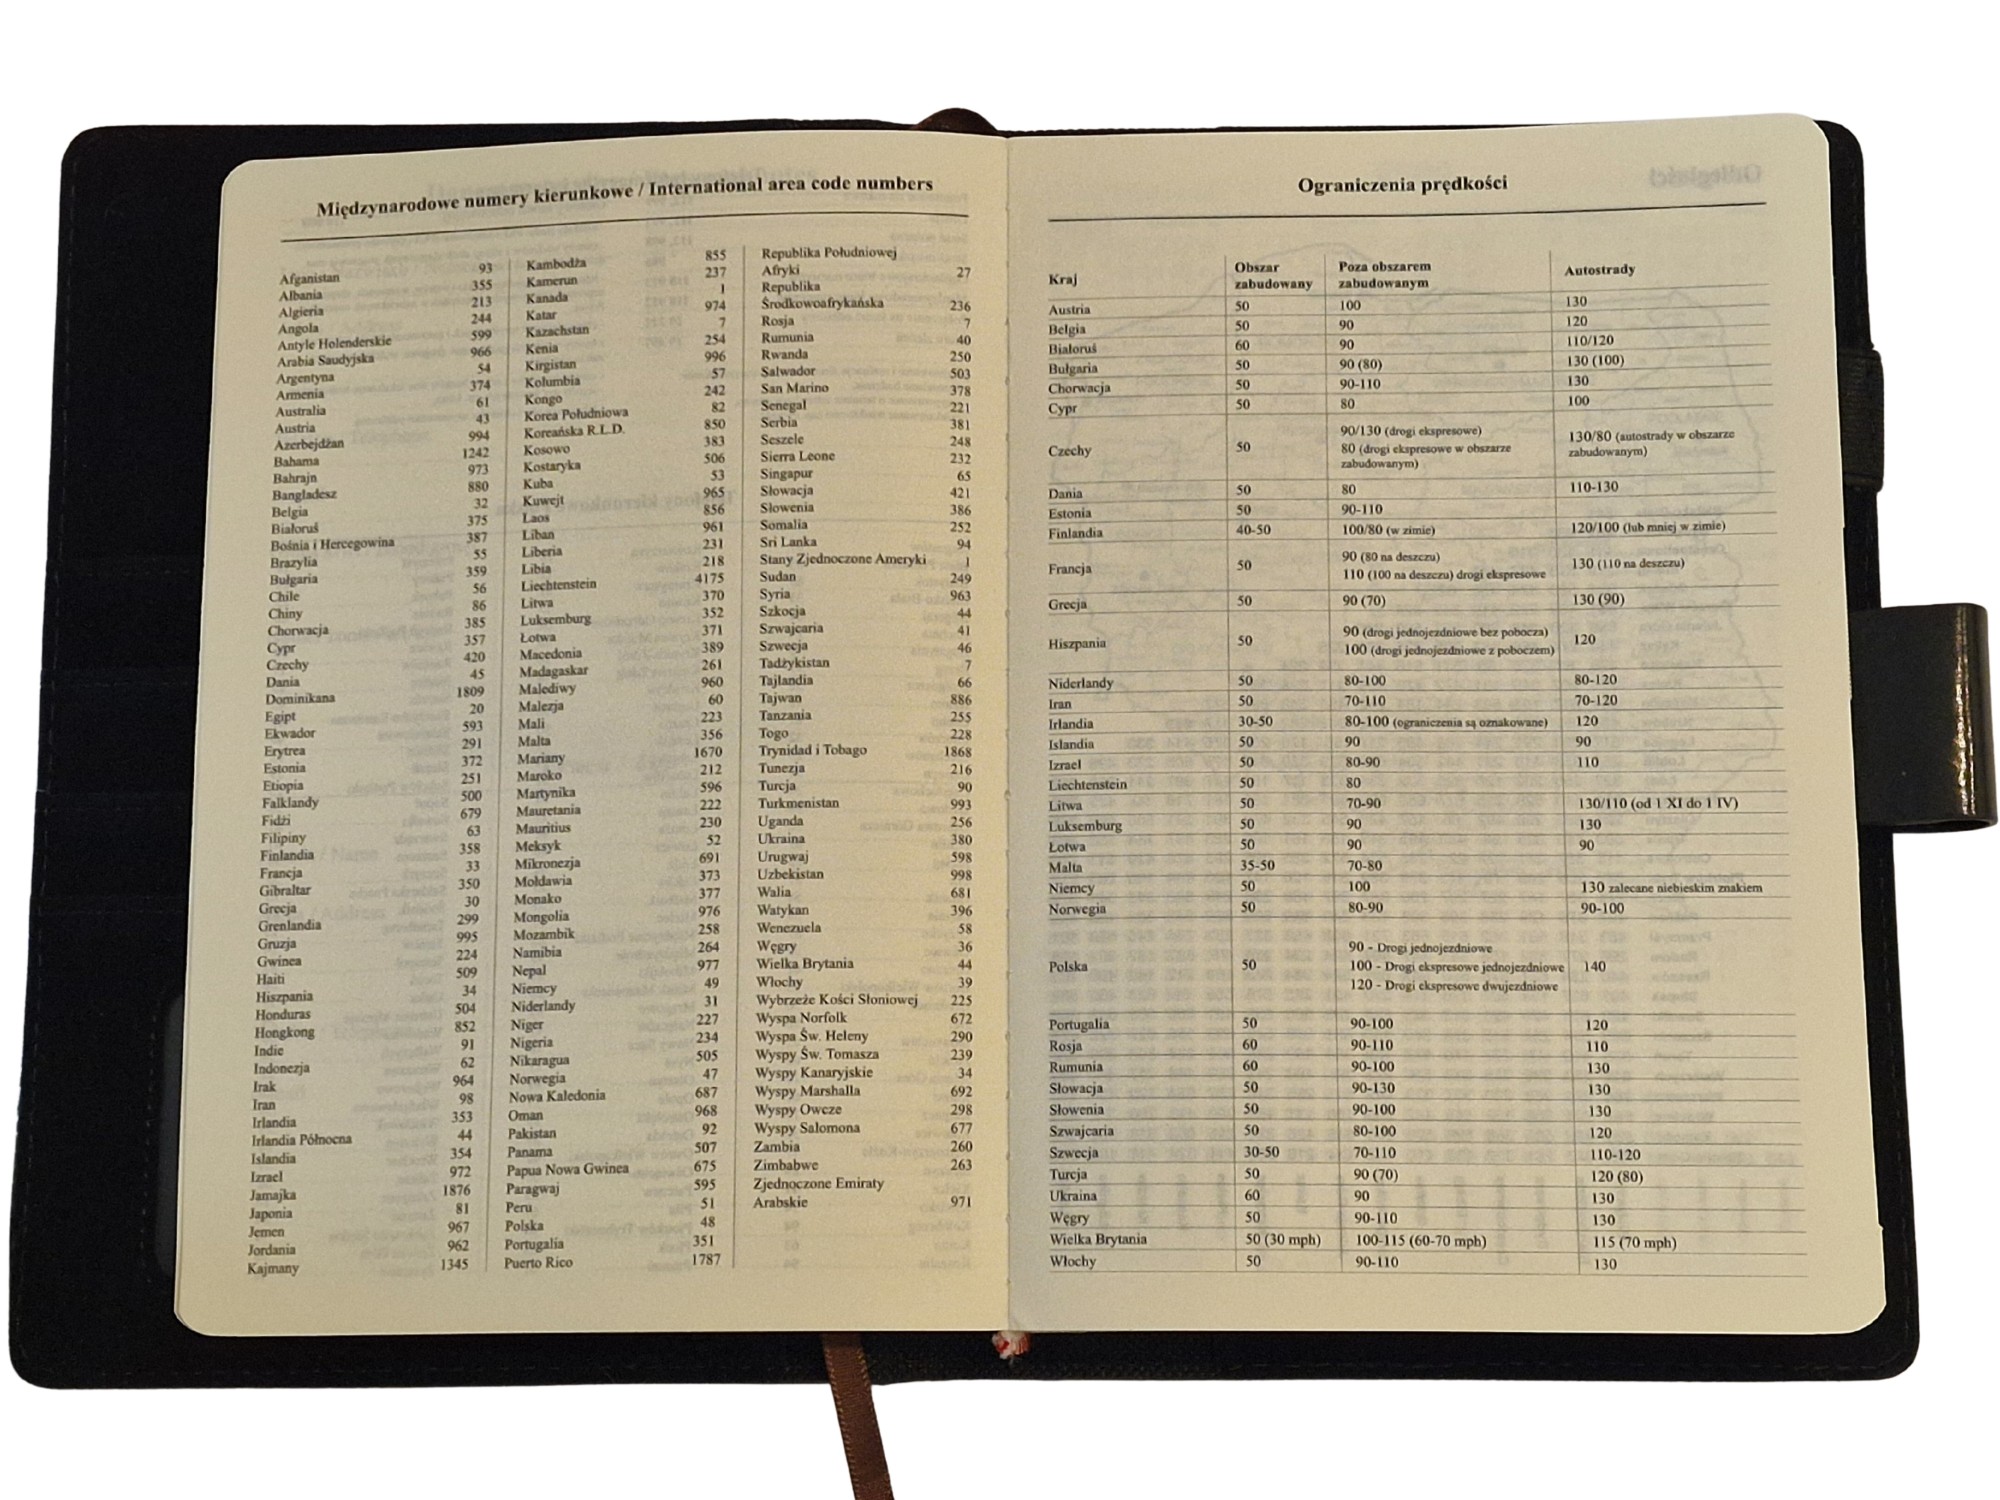 Międzynarodowe numery kierunkowe / International area code numbers
Afganistan 93
Albania 355
Algieria 213
Angola 244
Antyle Holenderskie 599
Arabia Saudyjska 966
Argentyna 54
Armenia 374
Australia 61
Austria 43
Azerbejdżan 994
Bahama 1242
Bahrajn 973
Bangladesz 880
Belgia 32
Białoruś 375
Bośnia i Hercegowina 387
Brazylia 55
Bułgaria 359
Chile 56
Chiny 86
Chorwacja 385
Cypr 357
Czechy 420
Dania 45
Dominikana 1809
Egipt 20
Ekwador 593
Erytrea 291
Estonia 372
Etiopia 251
Falklandy 500
Fidżi 679
Filipiny 63
Finlandia 358
Francja 33
Gibraltar 350
Grecja 30
Grenlandia 299
Gruzja 995
Gwinea 224
Haiti 509
Hiszpania 34
Honduras 504
Hongkong 852
Indie 91
Indonezja 62
Irak 964
Iran 98
Irlandia 353
Irlandia Północna 44
Islandia 354
Izrael 972
Jamajka 1876
Japonia 81
Jemen 967
Jordania 962
Kajmany 1345
Kambodża 855
Kamerun 237
Kanada 1
Katar 974
Kazachstan 7
Kenia 254
Kirgistan 996
Kolumbia 57
Kongo 242
Korea Południowa 82
Koreańska R.L.D. 850
Kosowo 383
Kostaryka 506
Kuba 53
Kuwejt 965
Laos 856
Liban 961
Liberia 231
Libia 218
Liechtenstein 4175
Litwa 370
Luksemburg 352
Łotwa 371
Macedonia 389
Madagaskar 261
Malediwy 960
Malezja 60
Mali 223
Malta 356
Mariany 1670
Maroko 212
Martynika 596
Mauretania 222
Mauritius 230
Meksyk 52
Mikronezja 691
Mołdawia 373
Monako 377
Mongolia 976
Mozambik 258
Namibia 264
Nepal 977
Niemcy 49
Niderlandy 31
Niger 227
Nigeria 234
Nikaragua 505
Norwegia 47
Nowa Kaledonia 687
Oman 968
Pakistan 92
Panama 507
Papua Nowa Gwinea 675
Paragwaj 595
Peru 51
Polska 48
Portugalia 351
Puerto Rico 1787
Republika Południowej
Afryki 27
Republika
Środkowoafrykańska 236
Rosja 7
Rumunia 40
Rwanda 250
Salwador 503
San Marino 378
Senegal 221
Serbia 381
Seszele 248
Sierra Leone 232
Singapur 65
Słowacja 421
Słowenia 386
Somalia 252
Sri Lanka 94
Stany Zjednoczone Ameryki 1
Sudan 249
Syria 963
Szkocja 44
Szwajcaria 41
Szwecja 46
Tadżykistan 7
Tajlandia 66
Tajwan 886
Tanzania 255
Togo 228
Trynidad i Tobago 1868
Tunezja 216
Turcja 90
Turkmenistan 993
Uganda 256
Ukraina 380
Urugwaj 598
Uzbekistan 998
Walia 681
Watykan 396
Wenezuela 58
Węgry 36
Wielka Brytania 44
Włochy 39
Wybrzeże Kości Słoniowej 225
Wyspa Norfolk 672
Wyspa Św. Heleny 290
Wyspy Św. Tomasza 239
Wyspy Kanaryjskie 34
Wyspy Marshalla 692
Wyspy Owcze 298
Wyspy Salomona 677
Zambia 260
Zimbabwe 263
Zjednoczone Emiraty
Arabskie 971
Ograniczenia prędkości
Kraj Obszar zabudowany Poza obszarem zabudowanym Autostrady
Austria 50 100 130
Belgia 50 90 120
Białoruś 60 90 110/120
Bułgaria 50 90 (80) 130 (100)
Chorwacja 50 90-110 130
Cypr 50 80 100
Czechy 50 90/130 (drogi ekspresowe) 80 (drogi ekspresowe w obszarze zabudowanym) 130/80 (autostrady w obszarze zabudowanym)
Dania 50 80 110-130
Estonia 50 90-110
Finlandia 40-50 100/80 (w zimie) 120/100 (lub mniej w zimie)
Francja 50 90 (80 na deszczu) 110 (100 na deszczu) drogi ekspresowe 130 (110 na deszczu)
Grecja 50 90 (70) 130 (90)
Hiszpania 50 90 (drogi jednojezdniowe bez pobocza) 100 (drogi jednojezdniowe z poboczem) 120
Niderlandy 50 80-100 80-120
Iran 50 70-110 70-120
Irlandia 30-50 80-100 (ograniczenia są oznakowane) 120
Islandia 50 90 90
Izrael 50 80-90 110
Liechtenstein 50 80
Litwa 50 70-90 130/110 (od 1 XI do 1 IV)
Luksemburg 50 90 130
Łotwa 50 90 90
Malta 35-50 70-80
Niemcy 50 100 130 zalecane niebieskim znakiem
Norwegia 50 80-90 90-100
Polska 50 90 - Drogi jednojezdniowe 100 - Drogi ekspresowe jednojezdniowe 120 - Drogi ekspresowe dwujezdniowe 140
Portugalia 50 90-100 120
Rosja 60 90-110 110
Rumunia 60 90-100 130
Słowacja 50 90-130 130
Słowenia 50 90-100 130
Szwajcaria 50 80-100 120
Szwecja 30-50 70-110 110-120
Turcja 50 90 (70) 120 (80)
Ukraina 60 90 130
Węgry 50 90-110 130
Wielka Brytania 50 (30 mph) 100-115 (60-70 mph) 115 (70 mph)
Włochy 50 90-110 130